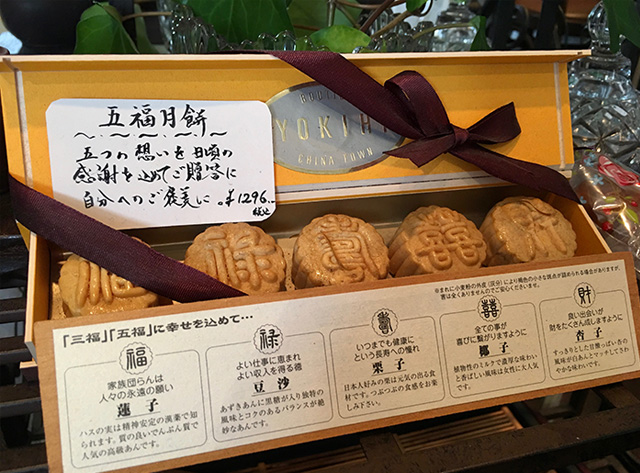 五福月餅
五つの想いを日頃の
感謝を込めてご贈答に
自分へのご褒美に。¥1296
税込
YOKIHI
CHINA TOWN
福
禄
壽
囍
財
※まれに小麦粉の外皮(灰分)により褐色の小さな斑点が認められる場合がありますが、
害は全くありませんのでご安心くださいませ。
「三福」「五福」に幸せを込めて…
福
家族団らんは
人々の永遠の願い
蓮子
ハスの実は精神安定の漢薬で知
られます。質の良いでんぷん質で
人気の高級あんです。
禄
よい仕事に恵まれ
よい収入を得る徳
豆沙
あずきあんに黒糖が入り独特の
風味とコクのあるバランスが絶
妙なあんです。
壽
いつまでも健康に
という長寿への憧れ
栗子
日本人好みの栗は元気の出る食
材です。つぶつぶの食感をお楽
しみ下さい。
囍
全ての事が
喜びに繋がりますように
椰子
植物性のミルクで濃厚な味わい
と香ばしい風味は女性に大人気
です。
財
良い出会いが
財をたくさん成しますように
杏子
すっきりとした甘酸っぱい杏の
風味が白あんとマッチしてさわ
やかな味わいです。